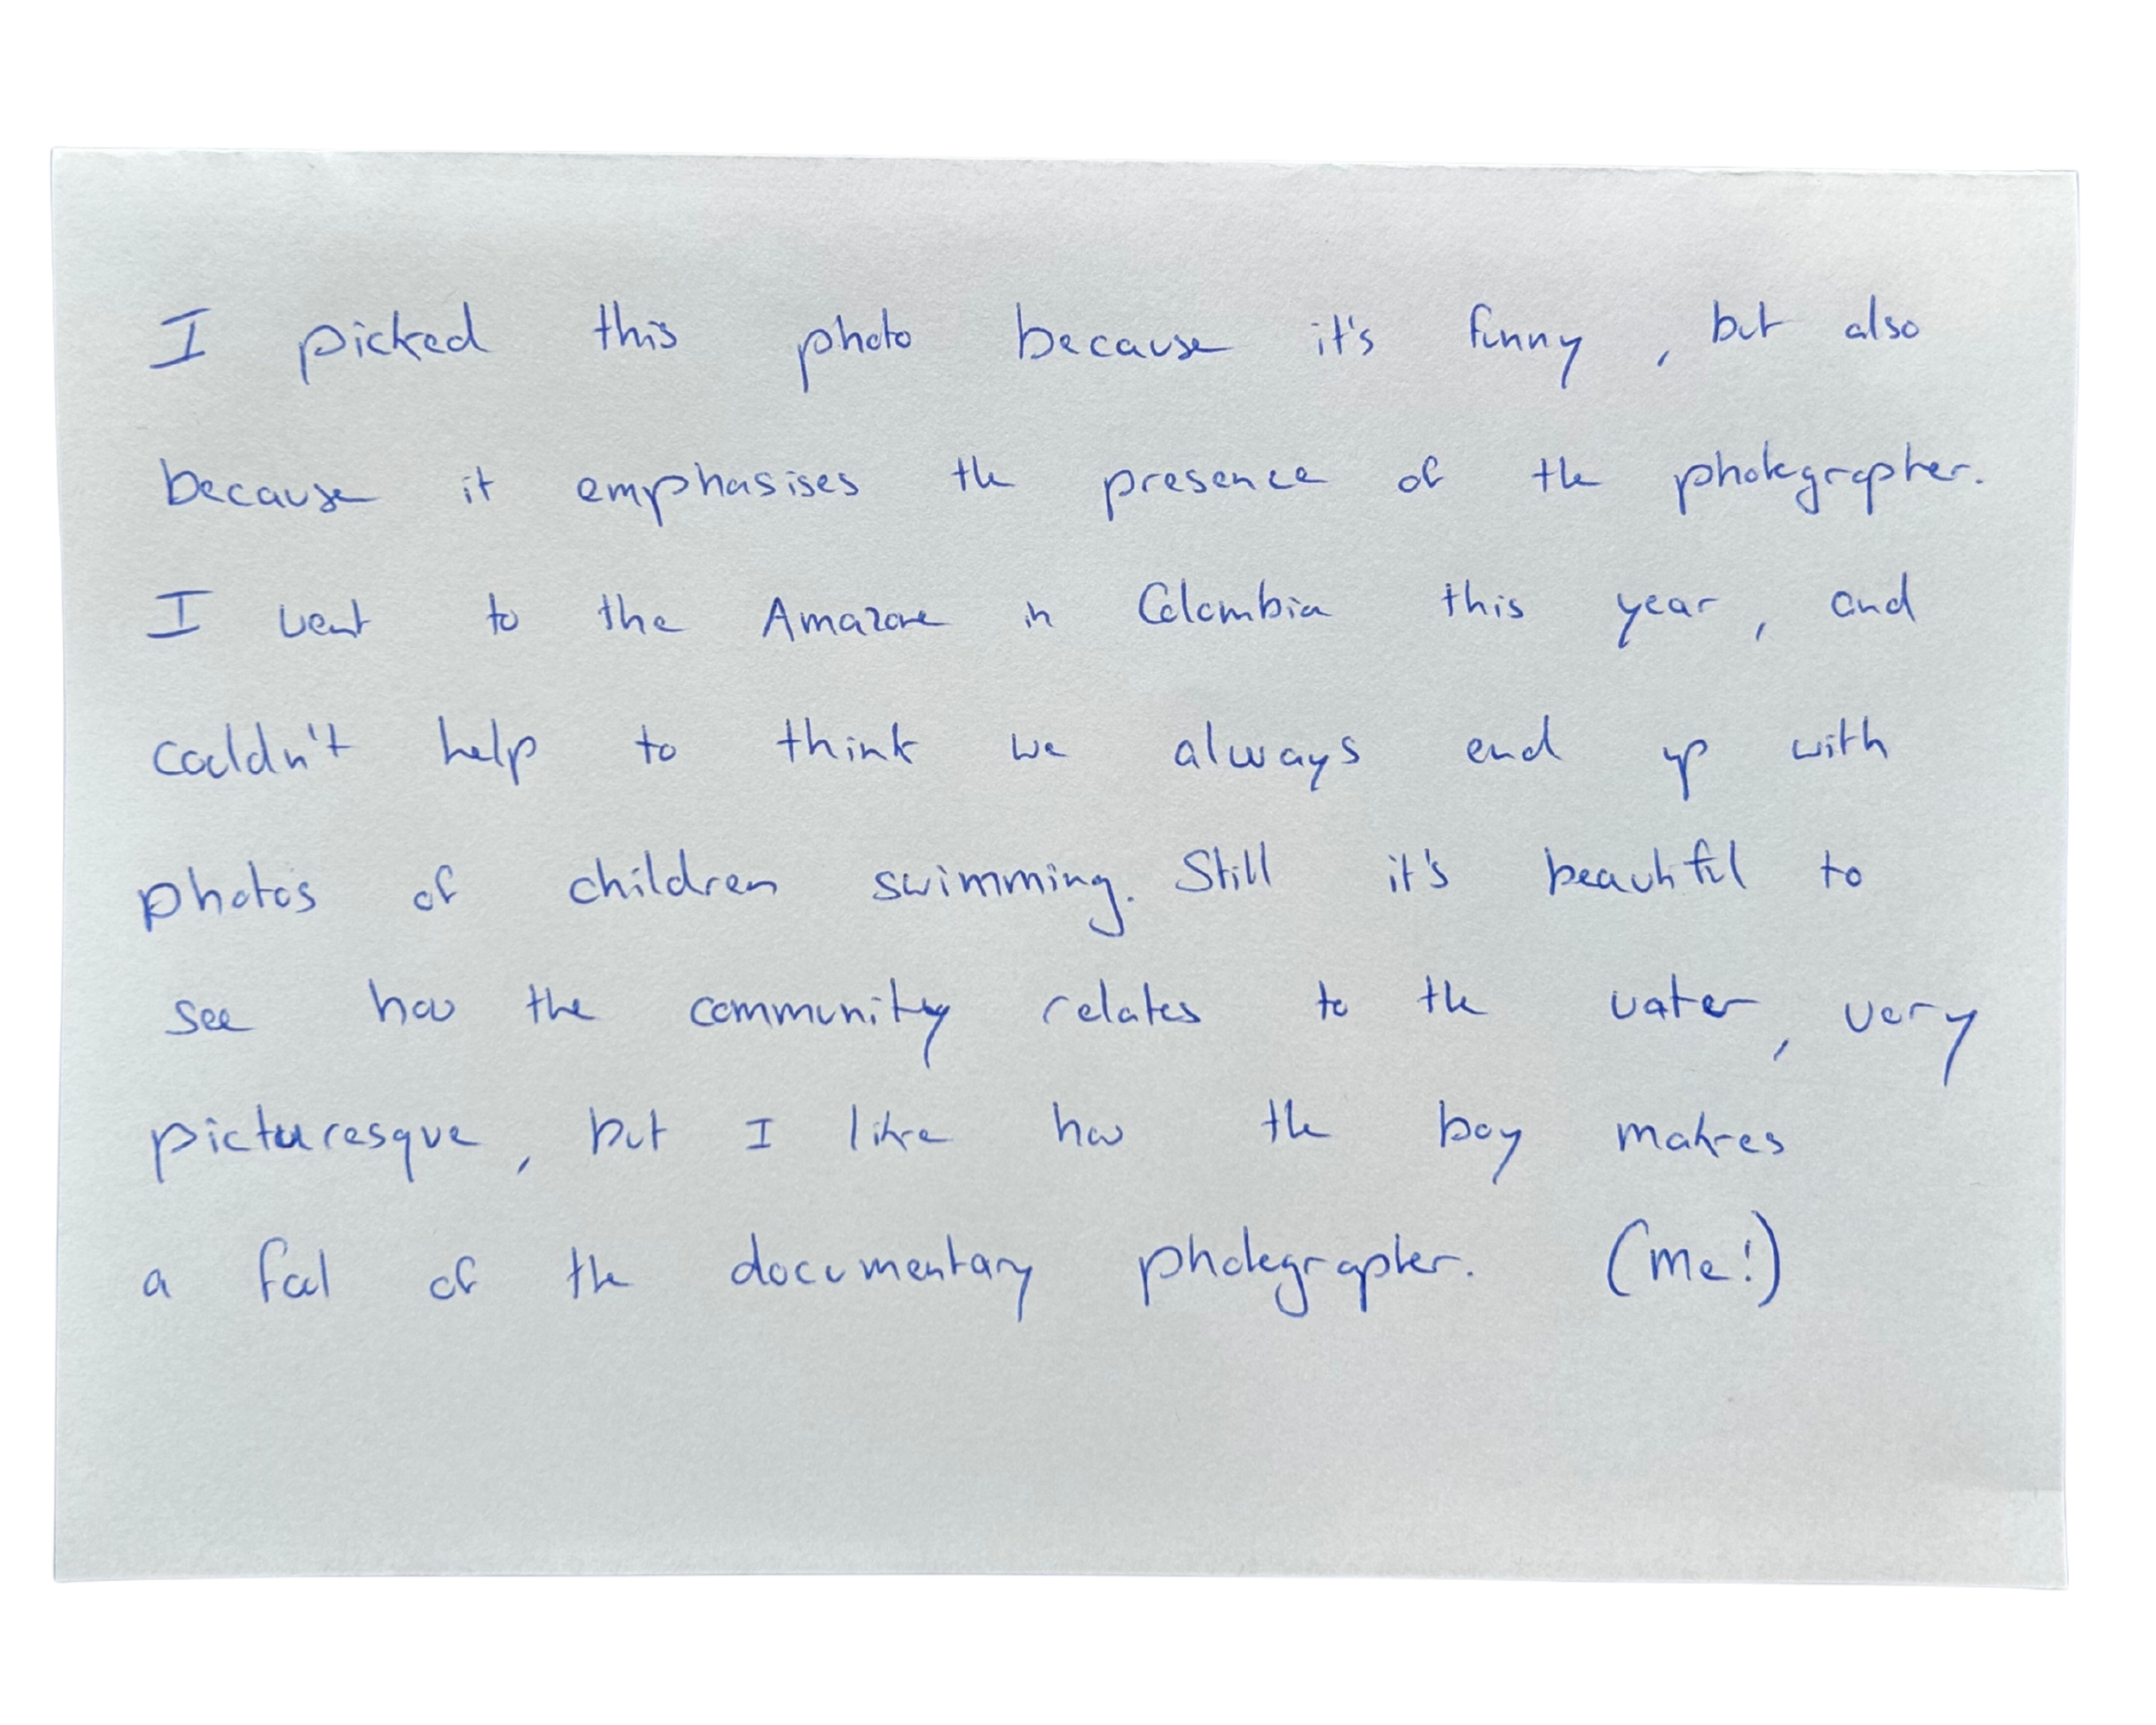 I picked this photo because it's funny, but also
because it emphasises the presence of the photographer.
I went to the Amazone in Colombia this year, and
couldn't help to think we always end up with
photos of children swimming. Still it's beautiful to
see how the community relates to the water, very
picturesque, but I like how the boy makes
a fool of the documentary photographer. (me!)